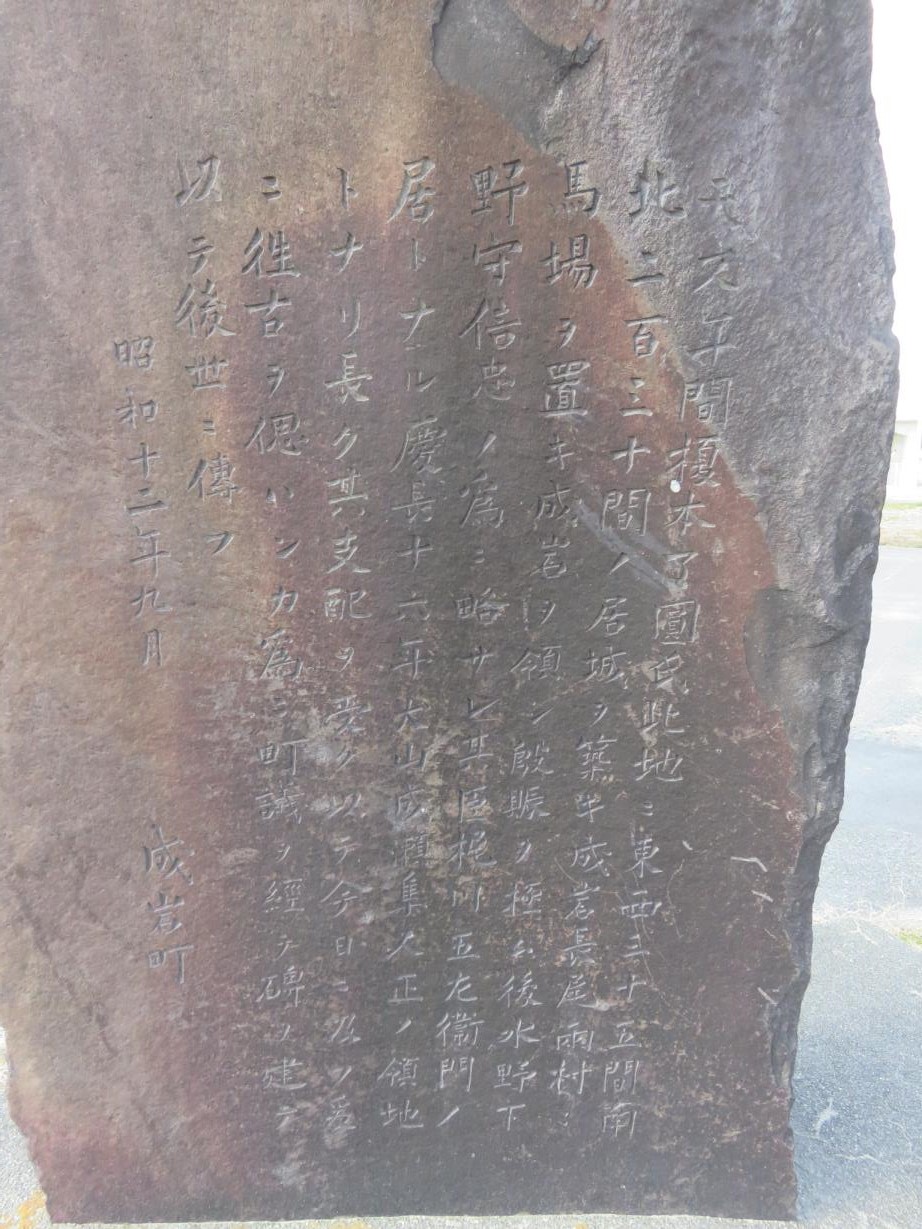 天文年間榎本了圓氏此地ニ東西三十五間南
北二百三十間ノ居城ヲ築キ成岩長尾両村ニ
馬場ヲ置キ成岩ヲ領シ殷賑ヲ極ム後水野下
野守信忠ノ為ニ略サレ其臣梶川五左衛門ノ
居トナル慶長十六年犬山成瀬隼人正ノ領地
トナリ長ク其支配ヲ受ク以テ今日ニ及ブ爰
ニ徃古ヲ偲ハンカ為ニ町議ヲ經テ碑ヲ建テ
以テ後世ニ傳フ
昭和十二年九月
成岩町